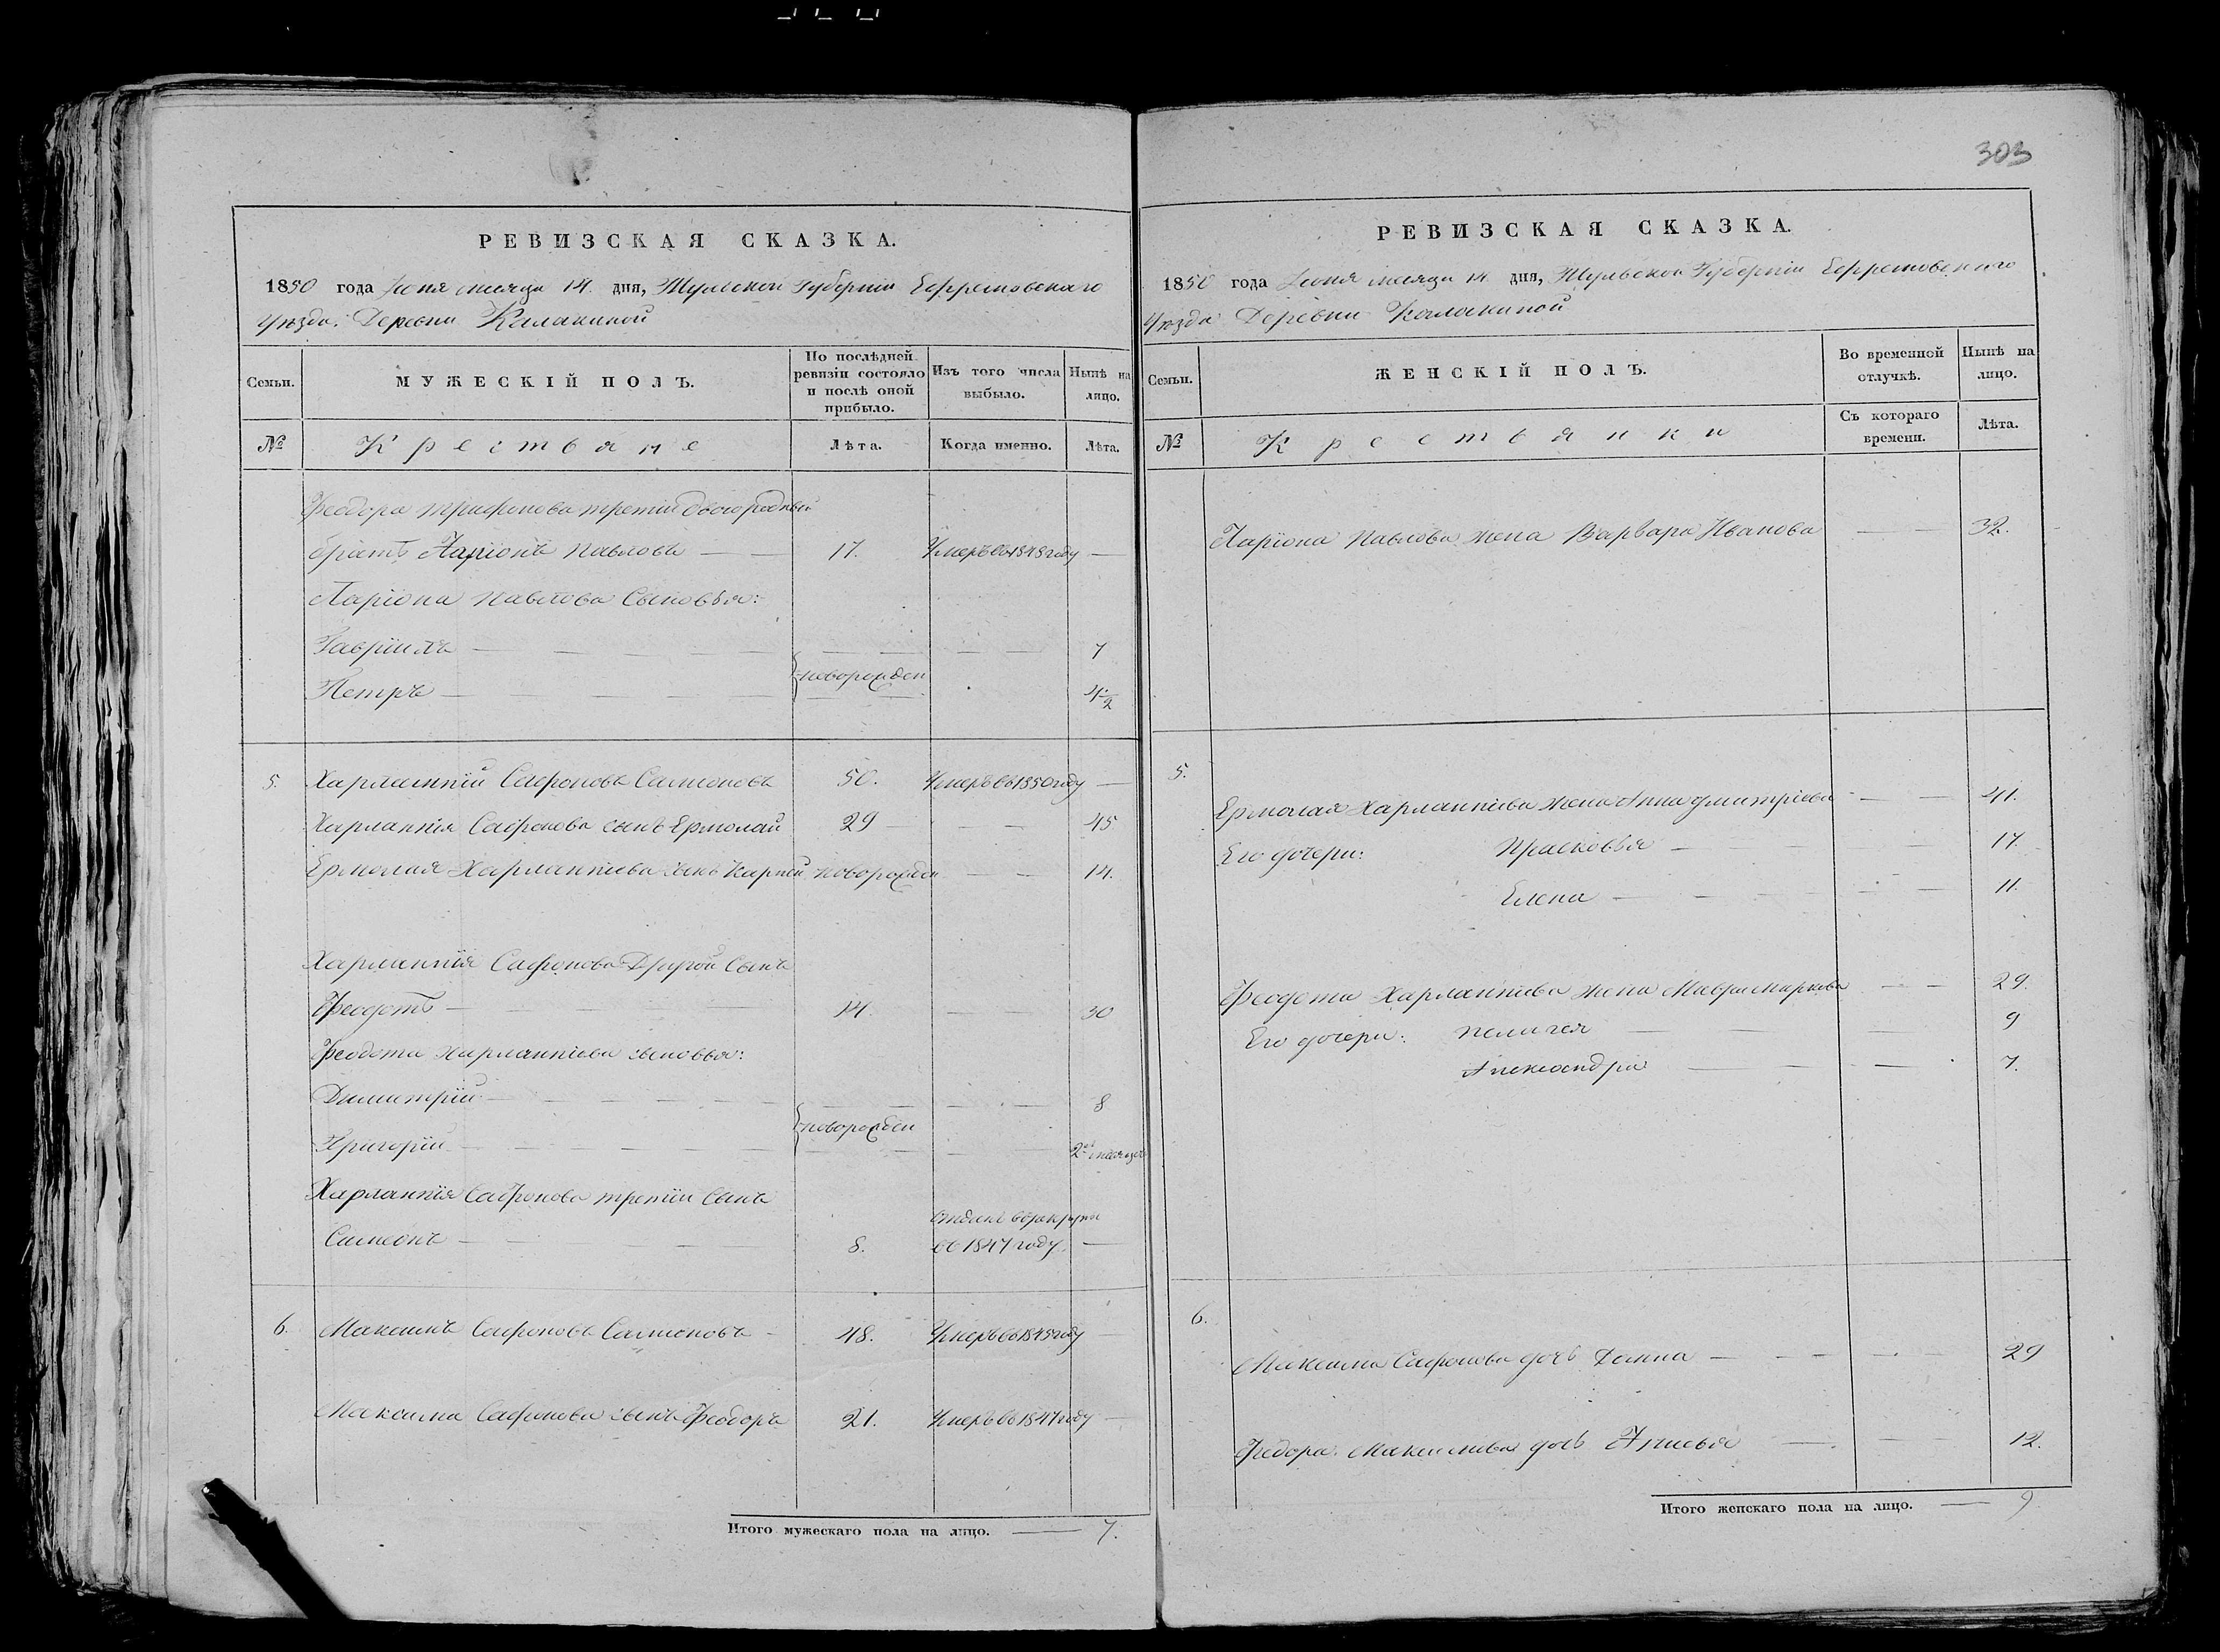 303
РЕВИЗСКАЯ СКАЗКА.
1850 года Іюня месяца 14 дня, Тульской Губерніи Ефремовскаго
Уѣзда: Деревни Калакиной
Семьи.
МУЖЕСКІЙ ПОЛЪ.
По послѣдней ревизіи состояло и послѣ оной прибыло.
Изъ того числа выбыло.
Нынѣ на лицо.
№
Крестьяне
Лѣта.
Когда именно.
Лѣта.
Феодора Трифонова третій двоюродный
братъ Ларіонъ Павловъ — 17. Умеръ въ 1848 году —
Ларіона Павлова Сыновья:
Гавріилъ — 7
новорожден
Петръ — 4 1/2
5. Харлампій Сафоновъ Самсоновъ 50. Умеръ въ 1850 году —
Харлампія Сафонова сынъ Ермолай 29 — 45
Ермолая Харлампіева сынъ Карпъ новорожден — 14.
Харлампія Сафонова Другой Сынъ
Феодотъ — 14. — 30
Феодота Харлампіева сыновья:
Димитрій — 8
новорожден
Григорій — 2хъ месяцъ
Харлампія Сафонова третій Сынъ
Отданъ въ рекруты
Симеонъ — 8. въ 1847 году. —
6. Максимъ Сафоновъ Самсоновъ — 48. Умеръ въ 1845 году —
Максима Сафонова сынъ Феодоръ 21. Умеръ въ 1847 году —
Итого мужескаго пола на лицо. — 7.
РЕВИЗСКАЯ СКАЗКА.
1850 года Іюня месяца 14 дня, Тульской Губерніи Ефремовскаго
Уѣзда Деревни Калакиной
Семьи.
ЖЕНСКІЙ ПОЛЪ.
Во временной отлучкѣ.
Нынѣ на лицо.
№
Крестьянки
Съ котораго времени.
Лѣта.
Ларіона Павлова жена Варвара Иванова — 32.
5.
Ермолая Харлампіева жена Анна Дмитріева — 41.
Его дочери: Прасковья — 17.
Елена — 11.
Феодота Харлампіева жена Мавра Маркова — 29.
Его дочери: Пелагея — 9
Александра — 7.
6.
Максима Сафонова дочь Домна — 29
Федора Максимова дочь — 12.
Итого женскаго пола на лицо. — 9